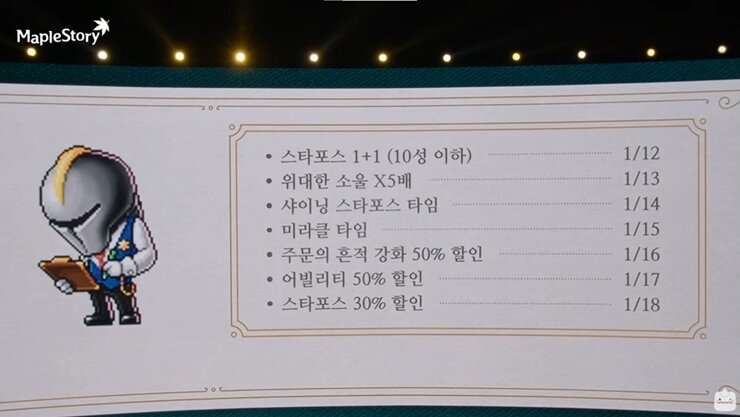 MapleStory
• 스타포스 1+1 (10성 이하) 1/12
• 위대한 소울 X5배 1/13
• 샤이닝 스타포스 타임 1/14
• 미라클 타임 1/15
• 주문의 흔적 강화 50% 할인 1/16
• 어빌리티 50% 할인 1/17
• 스타포스 30% 할인 1/18